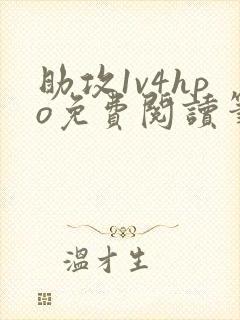 助攻1v4hp
o免費閱讀
溫才生